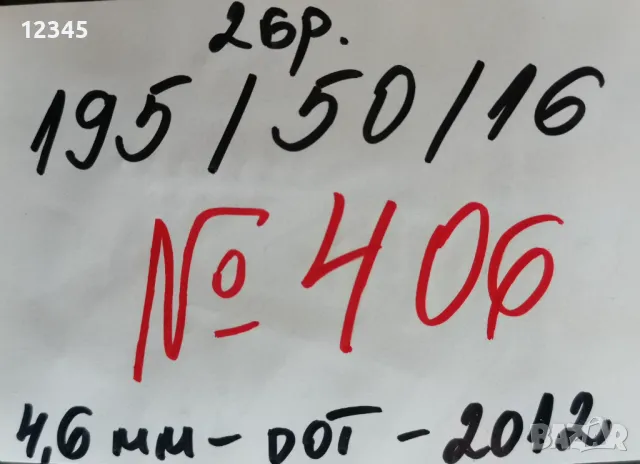 12345
2бр.
195/50/16
№ 406
4,6 мм - DOT - 2012
BAZAR